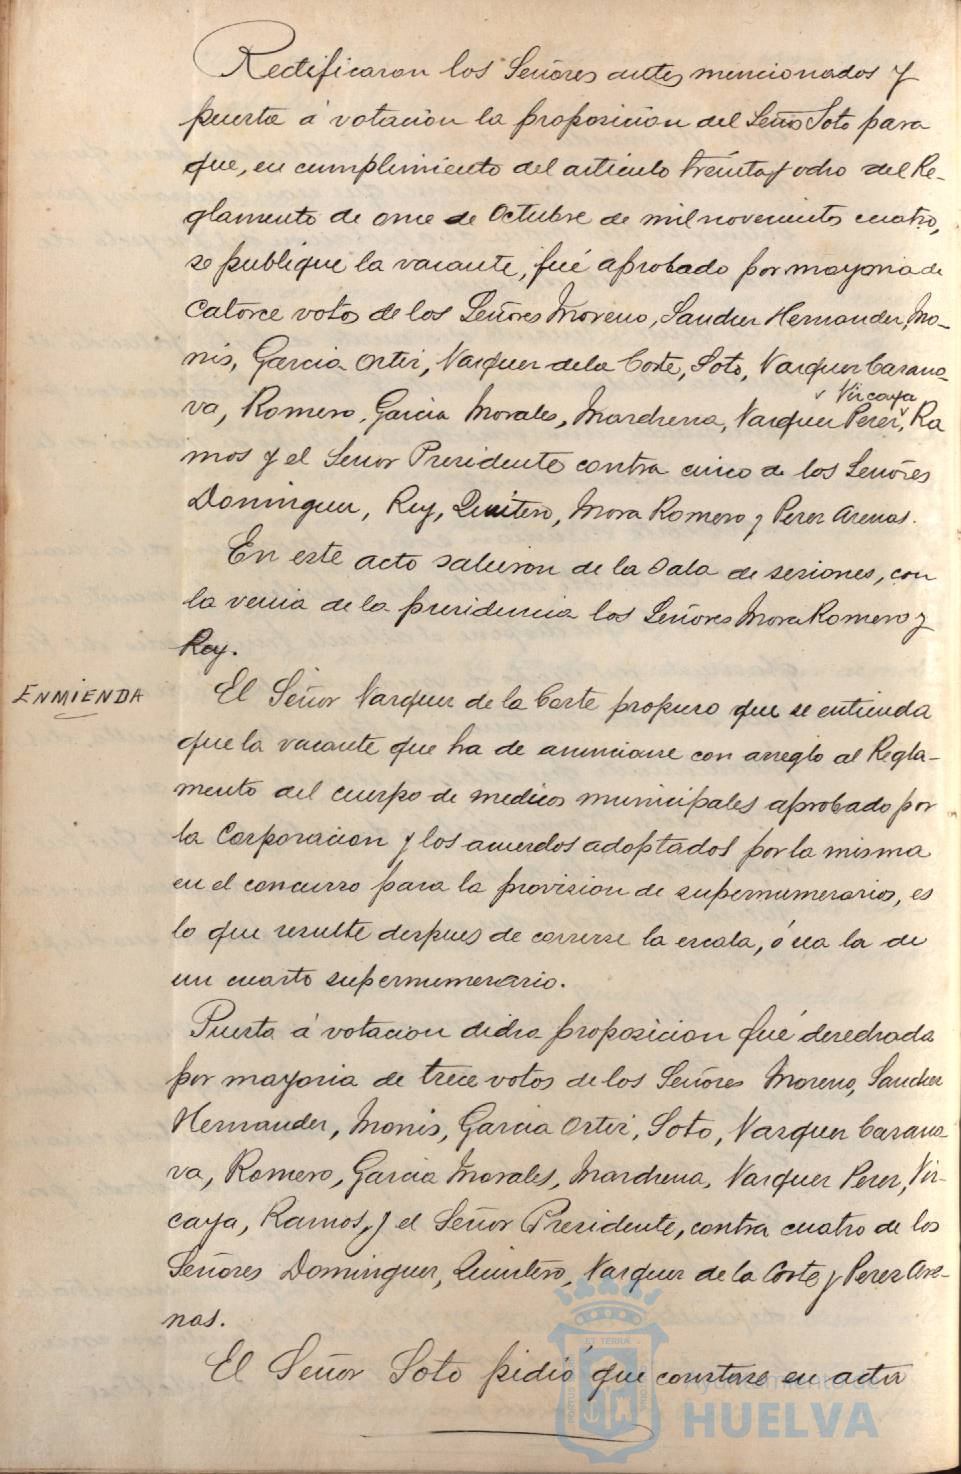 Rectificaron los Señores antes mencionados y
puesta á votación la proposición del Señor Soto para
que, en cumplimiento del articulo treinta y ocho del Re-
glamento de once de Octubre de mil novecientos cuatro,
se publique la vacante, fué aprobado por mayoria de
catorce votos de los Señores Moreno, Sanchez Hernandez, Mo-
nis, Garcia Ortiz, Vazquez de la Corte, Soto, Vazquez Casano-
va, Romero, Garcia Morales, Marchena, Vazquez Perez, Vizcaya, Ra
mos y el Señor Presidente contra cinco de los Señores
Dominguez, Rey, Quintero, Mora Romero y Perez Arenas.
En este acto salieron de la Sala de sesiones, con
la venia de la presidencia los Señores Mora Romero y
Rey.
ENMIENDA
El Señor Vazquez de la Corte propuso que se entienda
que la vacante que ha de anunciarse con arreglo al Regla-
mento del cuerpo de medicos municipales aprobado por
la Corporacion y los acuerdos adoptados por la misma
en el concurso para la provision de supernumerarios, es
lo que resulte despues de correrse la escala, ó sea la de
un cuarto supernumerario.
Puesta á votacion dicha proposicion fué desechada
por mayoria de trece votos de los Señores Moreno, Sanchez
Hernandez, Monis, Garcia Ortiz, Soto, Vazquez Casano-
va, Romero, Garcia Morales, Marchena, Vazquez Perez, Viz-
caya, Ramos, y el Señor Presidente, contra cuatro de los
Señores Dominguez, Quintero, Vazquez de la Corte y Perez Are-
nas.
El Señor Soto pidió que constase en acta
Ayuntamiento de
HUELVA